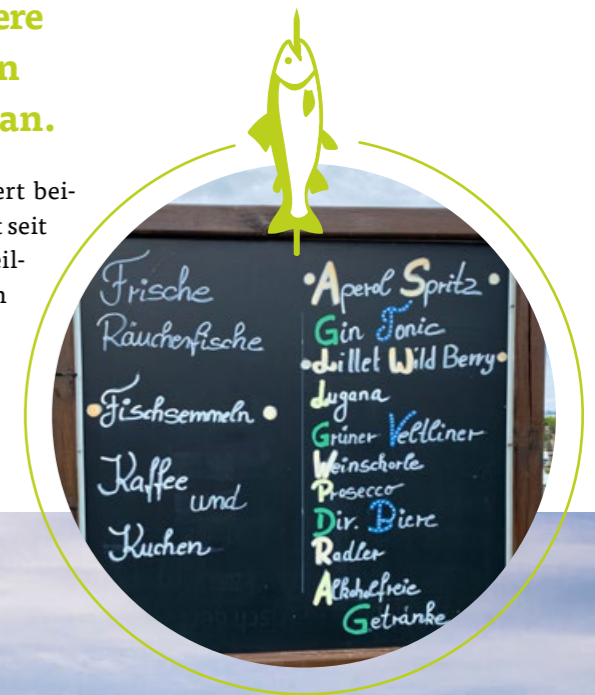 ere
n
an.
ert bei-
t seit
eil-
n
Frische
Räucherfische
• Fischsemmeln •
Kaffee
und
Kuchen
• Aperol Spritz •
Gin Tonic
• Lillet Wild Berry •
Lugana
Grüner Veltliner
Weinschorle
Prosecco
Div. Biere
Radler
Alkoholfreie
Getränke